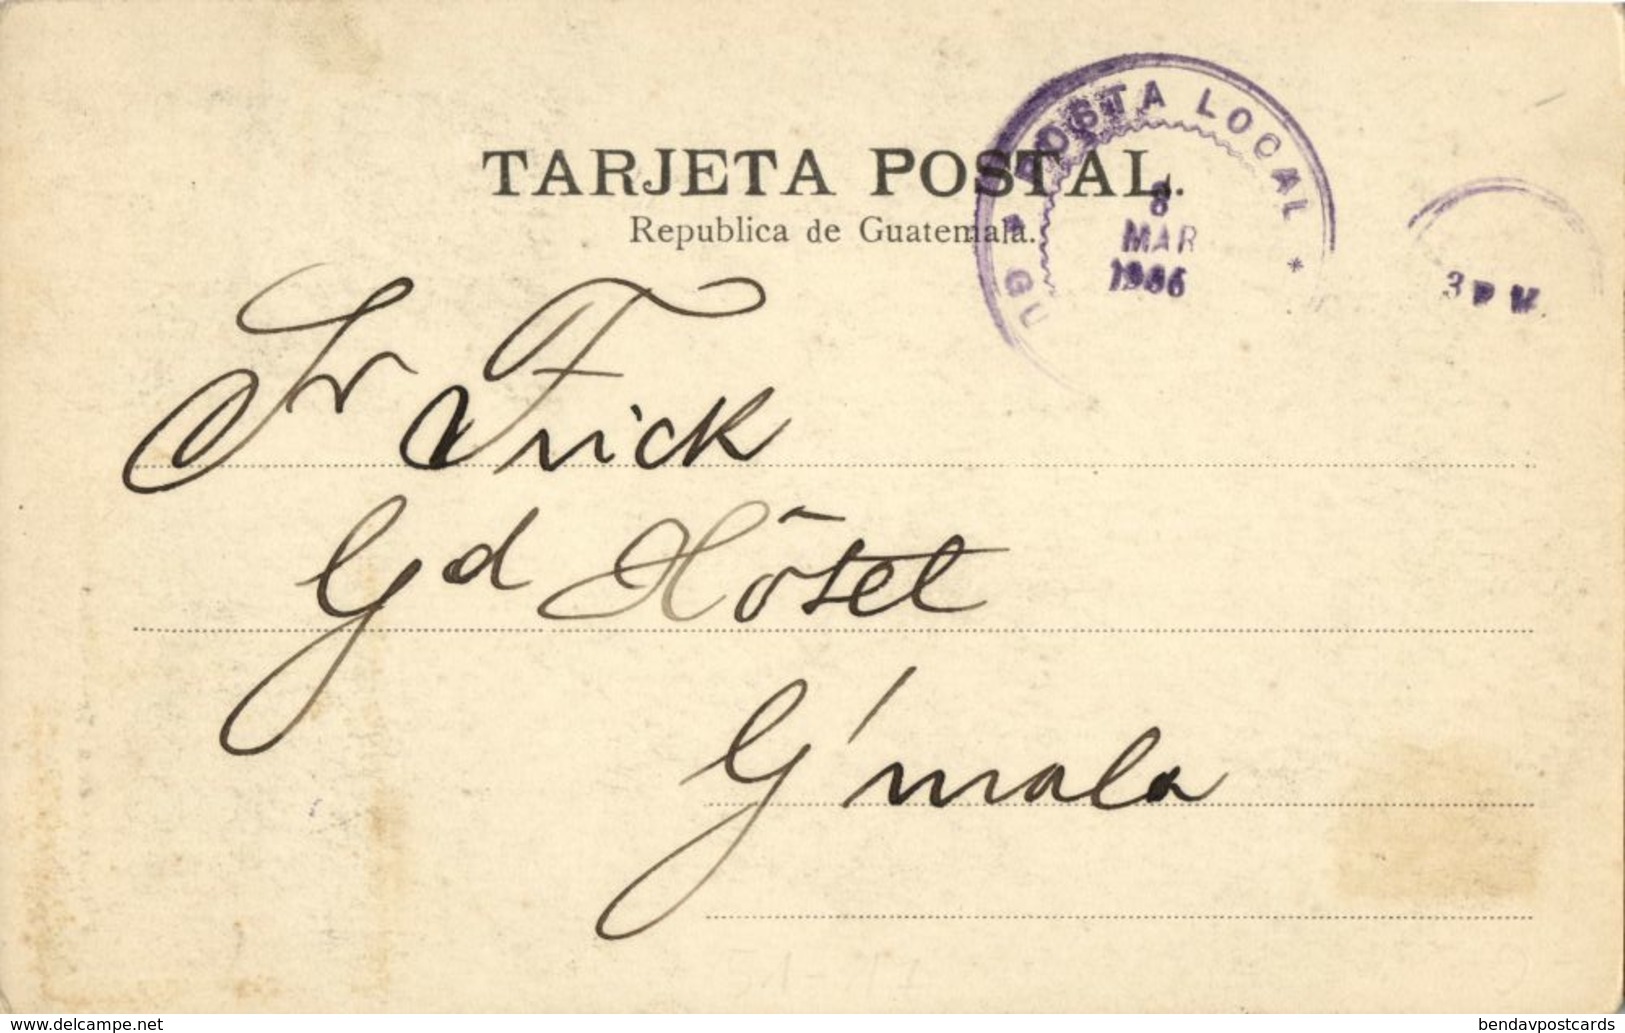 TARJETA POSTAL.
Republica de Guatemala.
POSTA LOCAL
* GU
8
MAR
1906
3 P M.
Sr Frick
Gd Hôtel
G'mala
51-17
www.delcampe.net
bendavpostcards